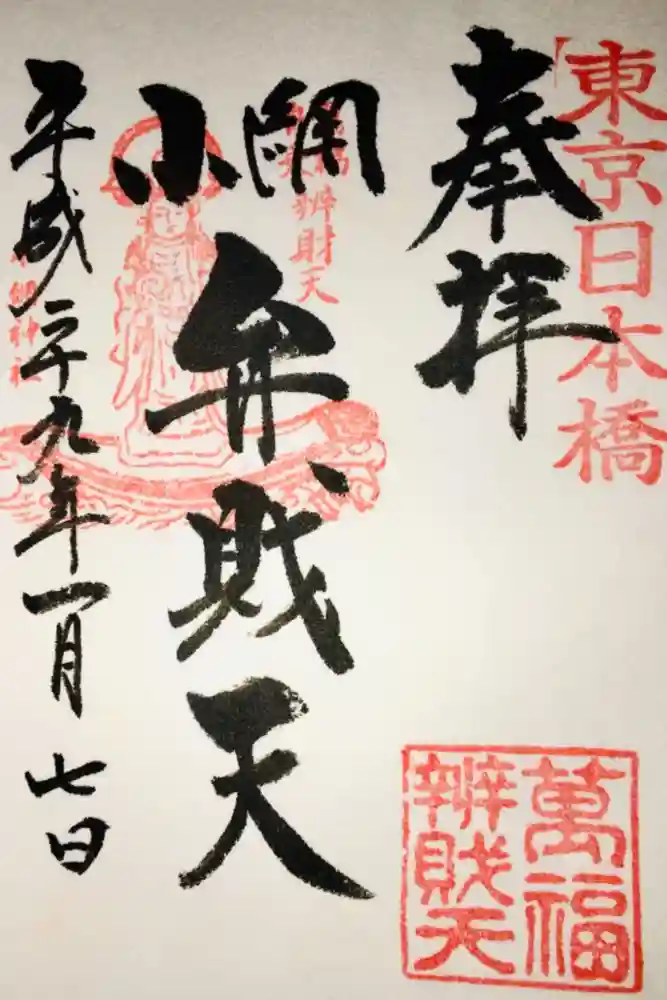 東京日本橋
奉拝
小網
弁財天
辨財天
平成二十九年一月七日
網神社
萬福
辨財天